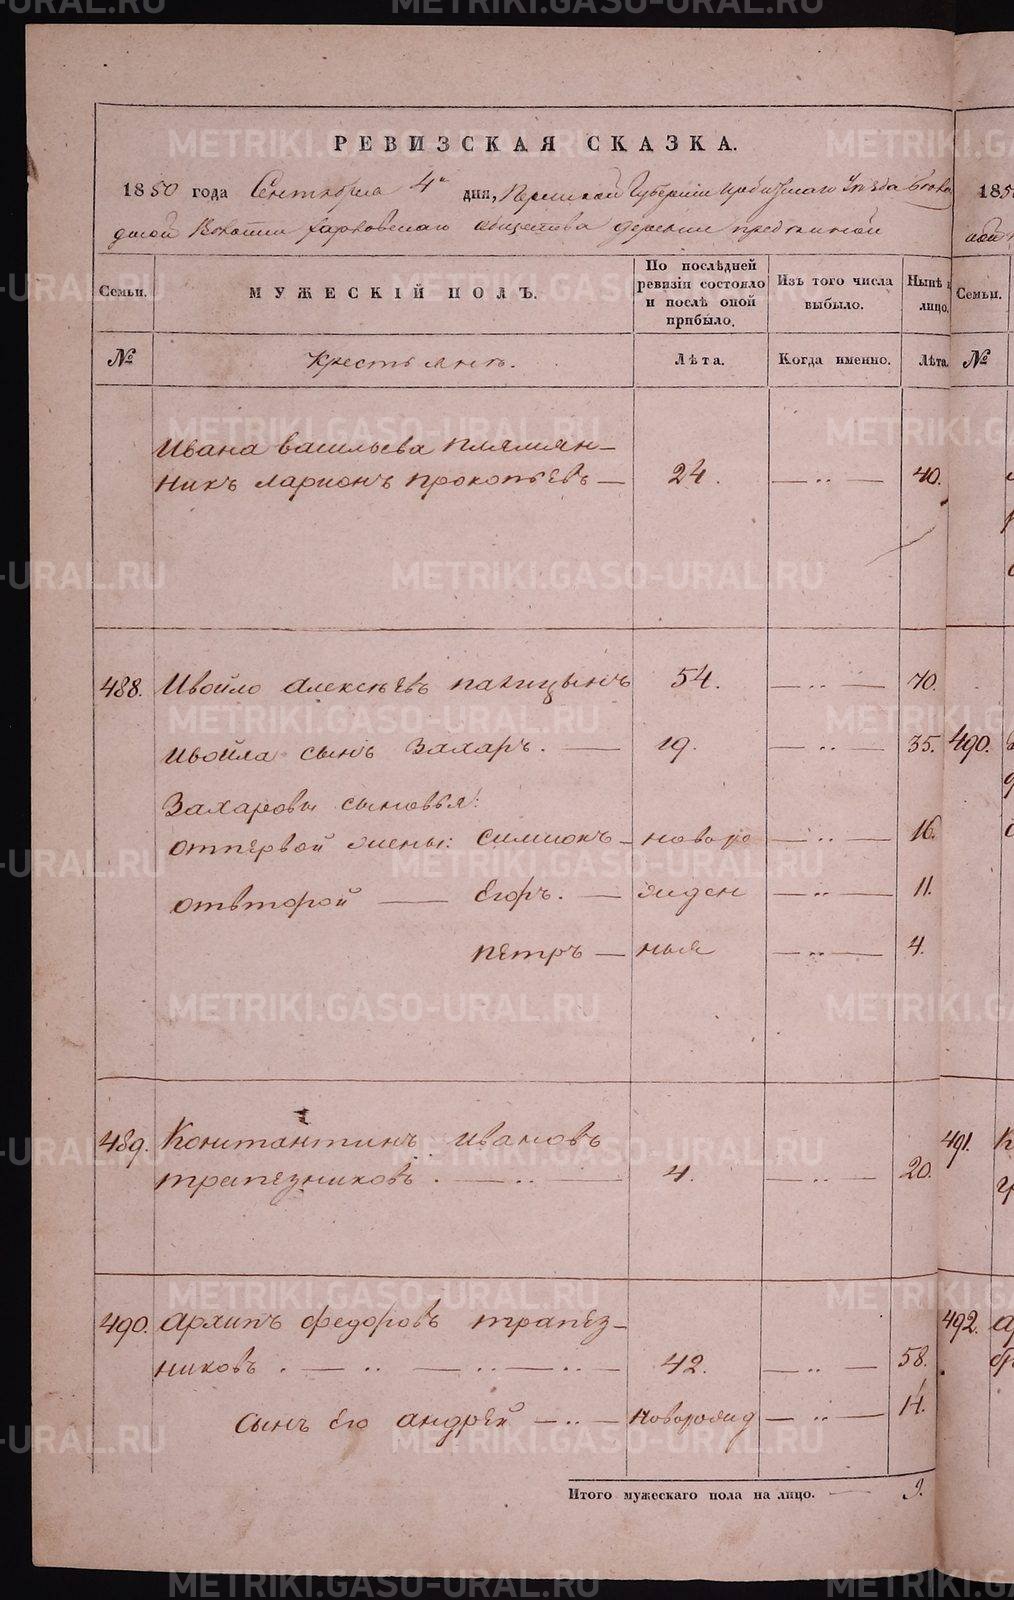 РЕВИЗСКАЯ СКАЗКА.
1850 года Сентября 4го дня, Пермской Губернии Ирбитскаго Уезда
Волости Харловскаго общества деревни
Семьи. МУЖЕСКІЙ ПОЛЪ. По послѣдней ревизіи состояло и послѣ оной прибыло. Изъ того числа выбыло. Нынѣ на лицо. Семьи.
№ Крестьянъ. Лѣта. Когда именно. Лѣта. №
Ивана васильева племян-
никъ ларионъ прокопьевъ — 24. — 40.
488. Ивойло алексѣевъ палицынъ 54. — 70.
Ивойла сынъ Захаръ. — 19. — 35. 490.
Захаровы сыновья:
отпервой жены: Симионъ — новоро — 16.
отвторой — Егоръ. — жден — 11.
петръ — ныя — 4.
489. Константинъ ивановъ 491.
трапезниковъ. — 4. — 20.
490. архипъ федоровъ трапез- 492.
никовъ. — 42. — 58.
сынъ его андрей — новорожд — 14.
Итого мужескаго пола на лицо. — 9.
METRIKI.GASO-URAL.RU